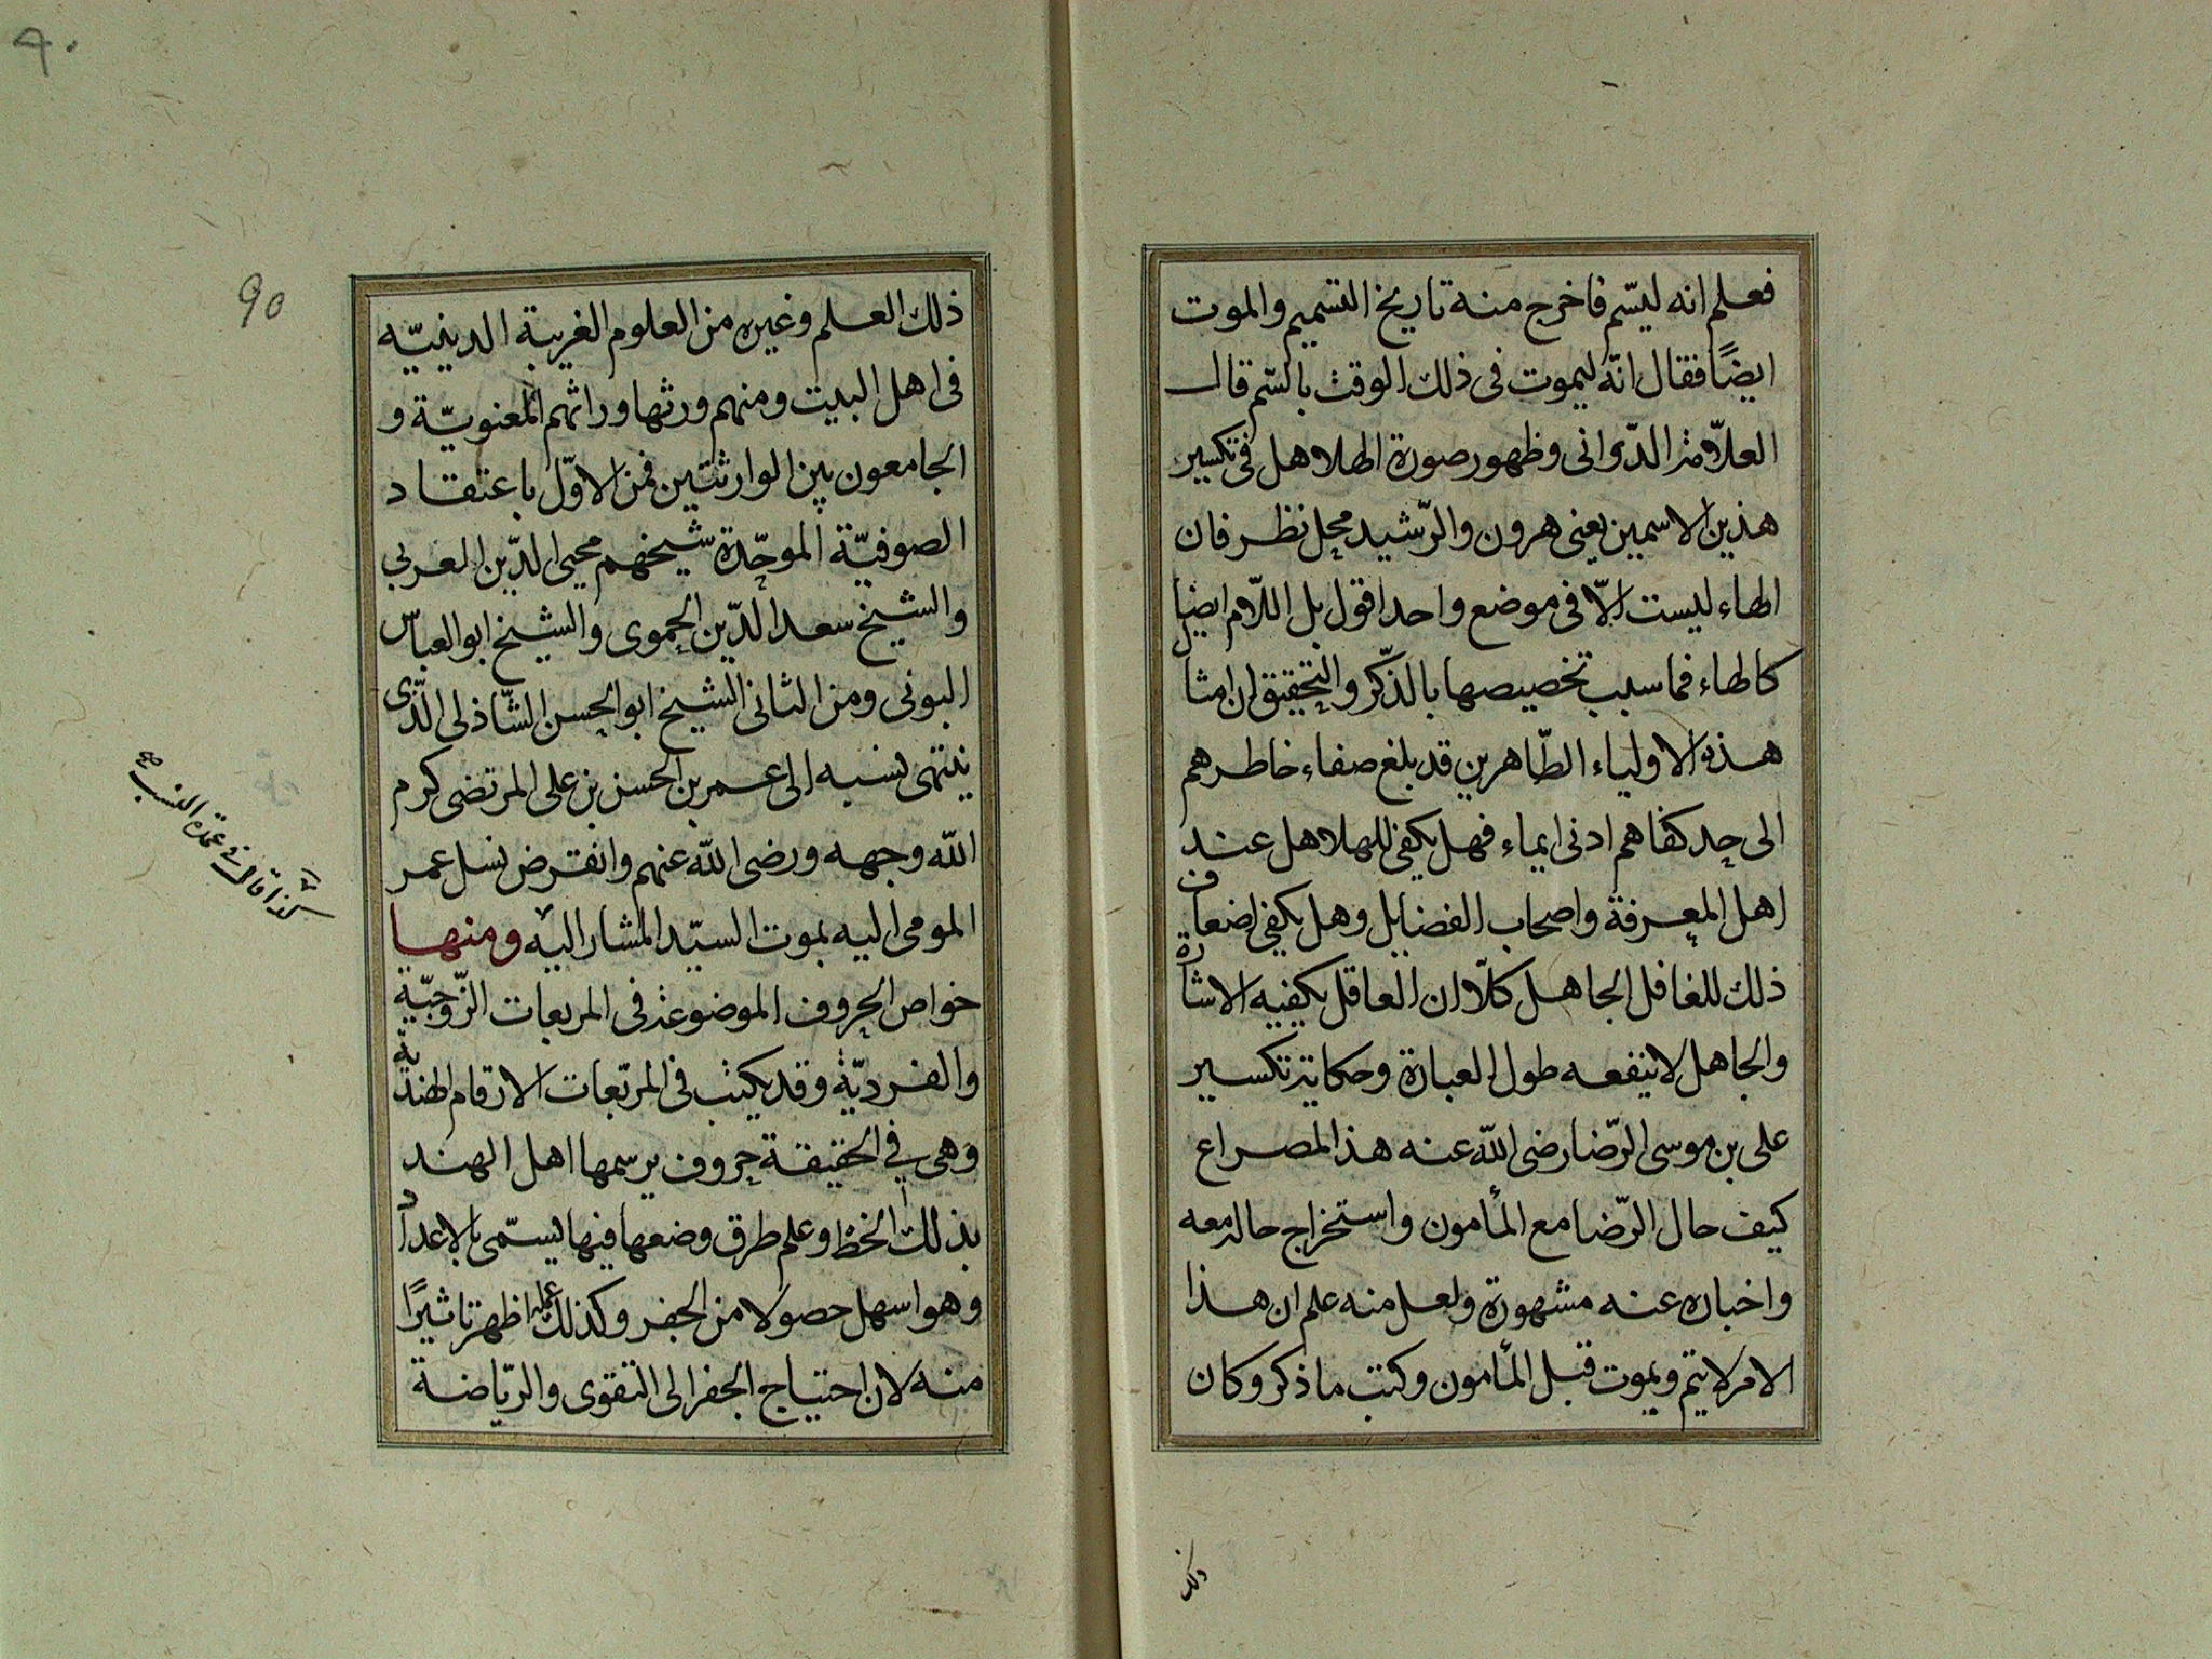 فعلم انه ليسّم فاخرج منه تاريخ التسميم والموت
ايضًا فقال انه ليموت فى ذلك الوقت بالسّم قال
العلّامة الدّوانى وظهور صورة الهلاهل فى تكسير
هذين الاسمين يعنى هرون والرّشيد محل نظر فان
الهاء ليست الّا فى موضع واحد اقول بل اللّام ايضا
كالهاء فما سبب تخصيصها بالذّكر والتحقيق ان امثال
هذه الاولياء الطّاهرين قد بلغ صفاء خاطرهم
الى حد كفاهم ادنى ايماء فهل يكفى للهلاهل عند
اهل المعرفة واصحاب الفضايل وهل يكفى اضعاف
ذلك للغافل الجاهل كلّا ان العاقل يكفيه الاشارة
والجاهل لا ينفعه طول العبارة وحكاية تكسير
على بن موسى الرّضا رضى الله عنه هذا المصراع
كيف حال الرّضا مع المأمون واستخراج حاله معه
واخباره عنه مشهورة ولعل منه علم ان هذا
الامر لا يتم ويموت قبل المأمون وكتب ما ذكر وكان
ذلك
٩٠
90
ذلك العلم وغيره من العلوم الغريبة الدينيّه
فى اهل البيت ومنهم ورثها وراثهم المعنويّة و
الجامعون بين الوارثتين فمن الاوّل باعتقاد
الصوفيّة الموحّدة شيخهم محيى الدّين العربى
والشيخ سعد الدّين الحموى والشيخ ابو العباس
البونى ومن الثانى الشيخ ابو الحسن الشّاذلى الّذى
ينتهى نسبه الى عمر بن الحسن بن على المرتضى كرم
الله وجهه ورضى الله عنهم وانقرض نسل عمر
المومى اليه بموت السيّد المشار اليه ومنها
خواص الحروف الموضوعة فى المربعات الزّوجيّة
والفرديّة وقد يكتب فى المربّعات الارقام الهنديّة
وهى في الحقيقة حروف يرسمها اهل الهند
بذلك الخط وعلم طرق وضعها فيها يسمّى بالاعداد
وهو اسهل حصولا من الجفر وكذلك عمله اظهر تاثيرًا
منه لان احتياج الجفر الى التقوى والريّاضة
كذا قال فى عمدة النسب